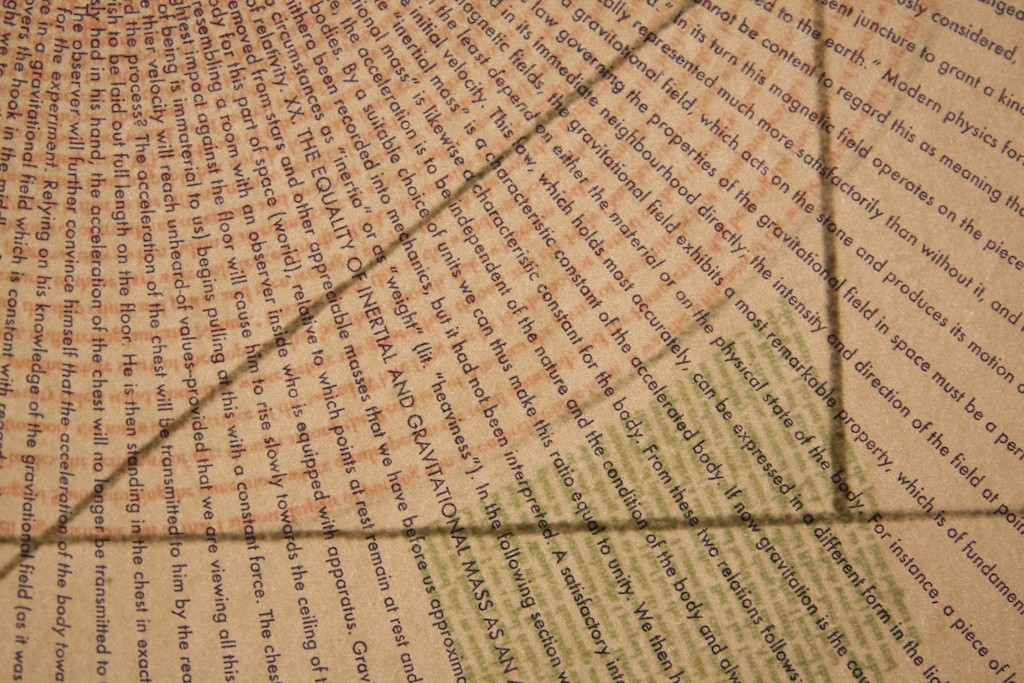 considered,
sent juncture to grant a kind
to the earth." Modern physics for
cannot be content to regard this as meaning tha
"In its turn this magnetic field operates on the piece
ally represented much more satisfactorily than without it, and
a gravitational field, which acts on the stone and produces its motion
law governing the properties of the gravitational field in space must be a per
in its immediate neighbourhood directly; the intensity and direction of the field at poin
netic fields, the gravitational field exhibits a most remarkable property, which is of fundamen
the least depend on either the material or on the physical state of the body. For instance, a piece of l
initial velocity. This law, which holds most accurately, can be expressed in a different form in the lig
"inertial mass" is a characteristic constant of the accelerated body. If now gravitation is the cau
onal mass" is likewise a characteristic constant for the body. From these two relations follows:
the acceleration is to be independent of the nature and the condition of the body and alw
bodies. By a suitable choice of units we can thus make this ratio equal to unity. We then h
hitherto been recorded into mechanics, but it had not been interpreted. A satisfactory int
circumstances as "inertia" or as "weight" (lit. "heaviness"). In the following section w
of relativity. XX. THE EQUALITY OF INERTIAL AND GRAVITATIONAL MASS AS AN A
emoved from stars and other appreciable masses that we have before us approxim
ody for this part of space (world), relative to which points at rest remain at rest and
esembling a room with an observer inside who is equipped with apparatus. Grav
ghtest impact against the floor will cause him to rise slowly towards the ceiling of t
t being is immaterial to us) begins pulling at this with a constant force. The chest
their velocity will reach unheard-of values-provided that we are viewing all this
d the process? The acceleration of the chest will be transmitted to him by the rea
ish to be laid out full length on the floor. He is then standing in the chest in exact
sly had in his hand, the acceleration of the chest will no longer be transmitted to
The observer will further convince himself that the acceleration of the body towa
experiment. Relying on his knowledge of the gravitational field (as it was
in a gravitational field which is constant with regard
overs the hook in the